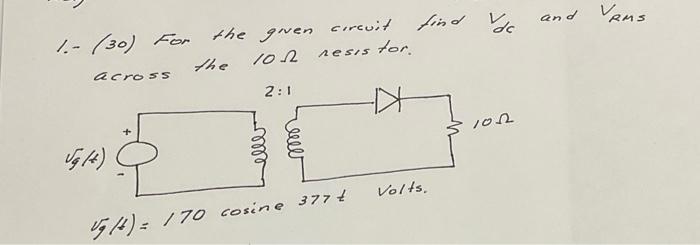 1.- (30) For the given circuit find Vdc and VRMS
across the 10Ω resistor.
2:1
+
10Ω
vg(t)
-
vg(t) = 170 cosine 377t Volts.